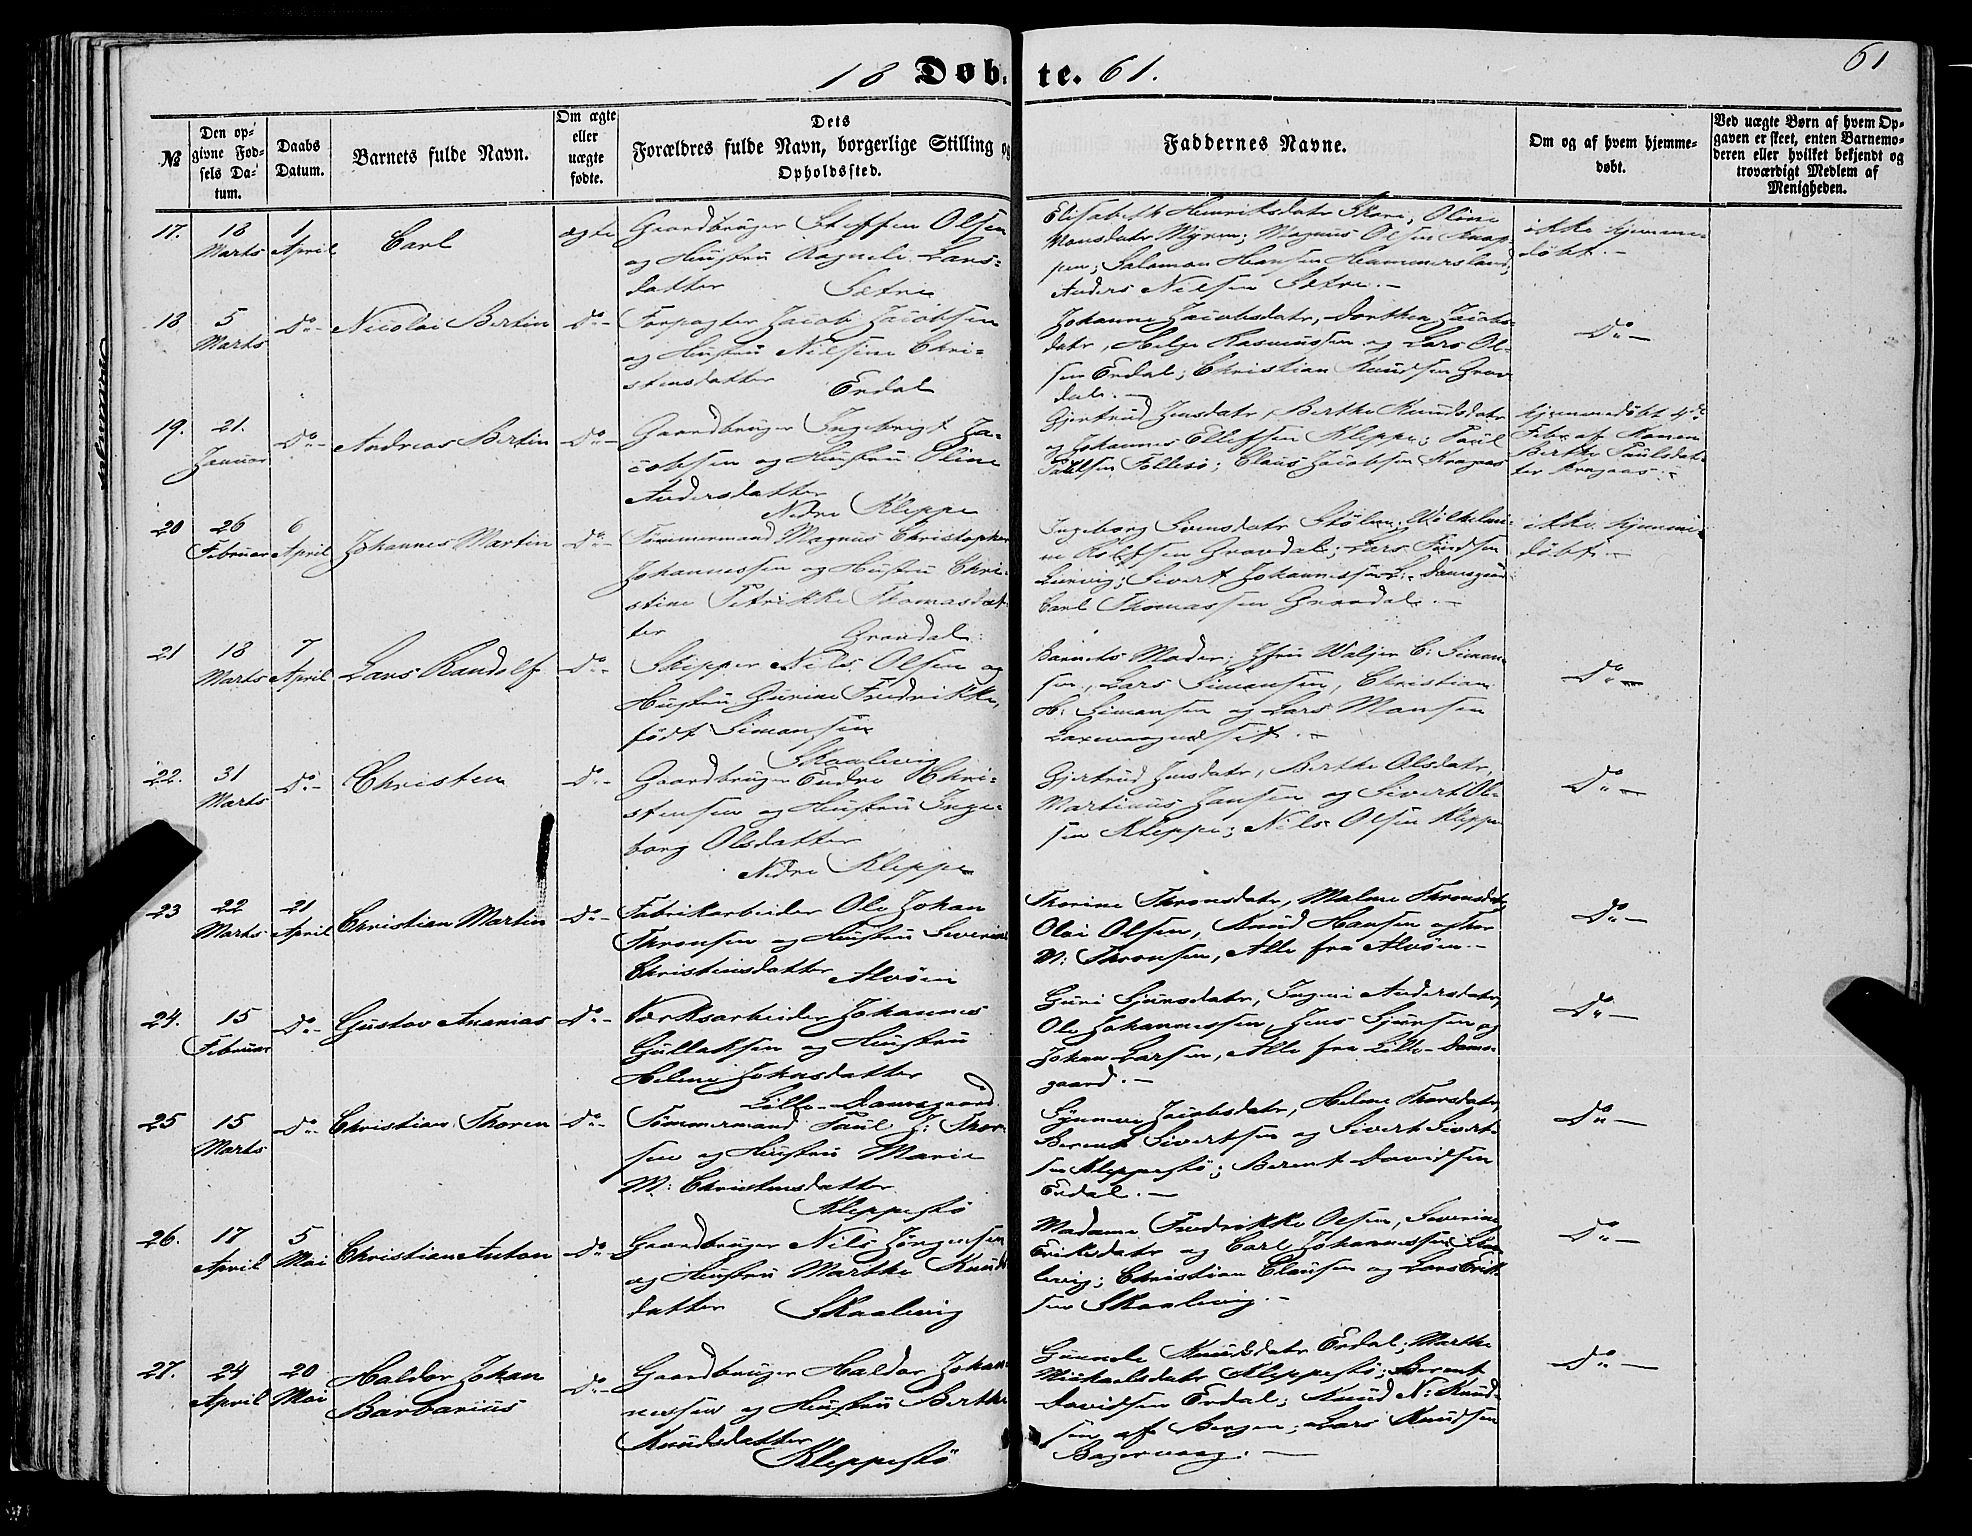 61
18 Døb. te. 61.
№
Den opgivne Fødsels Datum.
Daabs Datum.
Barnets fulde Navn.
Om ægte eller uægte fødte.
Dets Forældres fulde Navn, borgerlige Stilling og Opholdssted.
Faddernes Navne.
Om og af hvem hjemmedøbt.
Ved uægte Børn af hvem Opgaven er skeet, enten Barnemoderen eller hvilket bekjendt og troværdigt Medlem af Menigheden.
17. 18 Marts 1 April Carl ægte
Gaardbruger Steffen Olsen
og Hustru Ragnele Lars=
datter Sætre
Elisabeth Henriksdatr Skare, Oline
Monsdatr Myren; Magnus Olsen Knap=
pen; Salamon Hansen Hammersland;
Anders Nilsen Sætre.-
ikke hjemme=
døbt.-
18 5 Marts Do- Nicolai Bertin Do-
Forpagter Jacob Jacobsen
og Hustru Nilsine Chri=
stensdatter Erdal
Johanne Jacobsdatr, Dorthea Jacobs=
datr, Helge Rasmussen og Lars Ol=
sen Erdal; Christian Knudsen Grav=
dal.-
Do-
19. 21. Januar Do- Andreas Bertin Do-
Gaardbruger Ingebrigt Ja=
cobsen og Hustru Oline
Andersdatter
Nedre Kleppe
Gjertrud Jensdatr, Berthe Knudsdatr
og Johannes Ellefsen Kleppe; Paul
Paulsen Follesø; Claus Jacobsen Kragaas
hjemmedøbt 4de
Febr. af Konen
Berthe Paulsdat=
ter Kragaas.-
20 26 Februar 6 April Johannes Martin Do-
Tømmermand Magnus Christopher
Johannessen og Hustru Chri=
stine Petrikke Thomasdat=
ter Gravdal.
Ingeborg Svensdatr Stølen; Wilhelmi=
ne Rolfsen Gravdal; Lars Findsen
Lervig; Sivert Johannessen L. Damsgaard
Carl Thomassen Gravdal.-
ikke hjemme=
døbt.-
21 18 Marts 7 April Lars Randolf Do-
Skipper Nils Olsen og
Hustru Gurine Fredrikke,
født Simonsen
Skaalevig
Barnets Moder; Jfru Waljer C: Simon=
sen, Lars Simonsen, Christian
H: Simonsen og Lars Monsen
Laxevaagnesset.-
Do-
22. 31 Marts Do- Christen Do-
Gaardbruger Endre Chri=
stensen og Hustru Inge=
borg Olsdatter
Nedre Kleppe
Gjertrud Jensdatr, Berthe Olsdatr,
Martinus Jansen og Sivert Ol=
sen Kleppe; Nils Olsen Kleppe
Do-
23 22 Marts 21 April Christian Martin Do-
Fabrikarbeider Ole Johan
Thronsen og Hustru Severine
Christensdatter Alvøen
Thorine Thronsdatr, Malene Thronsdatr,
Oloi Olsen, Knud Hansen og Thor
M: Thronsen, Alle fra Alvøen.-
Do-
24. 15 Februar Do- Gustav Ananias Do-
Værksarbeider Johannes
Gullaksen og Hustru
Helene Johnsdatter
Lille-Damsgaard
Guri Sjursdatr, Ingeri Andersdatr,
Ole Johannessen, Jens Sjursen og
Johan Larsen, Alle fra Lille-Dams=
gaard.-
Do-
25 15 Marts Do- Christian Thoren Do-
Tømmermand Paul J: Thor=
sen og Hustru Marie
M: Christensdatter
Kleppestø
Synneve Jacobsdatr, Helene Thorsdatr,
Berent Sivertsen og Sivert Sivert=
sen Kleppestø; Berent Davidsen
Erdal.-
Do-
26. 17 April 5 Mai Christian Anton Do-
Gaardbruger Nils Jørgensen
og Hustru Marthe Knuds
datter Skaalevig
Madame Fredrikke Olsen, Severine
Eriksdatr og Carl Johannessen Skaa=
levig; Christian Clausen og Lars Erik=
sen Skaalevig.-
Do-
27. 24 April 20 Mai Haldor Johan
Barbarius Do-
Gaardbruger Haldor Johan=
nessen og Hustru Berthe
Knudsdatter
Kleppestø
Gunnele Knudsdatr Erdal; Marthe
Mickaelsdatr Kleppestø; Berent
Davidsen Erdal; Knud N: Knud=
sen af Bergen; Lars Knudsen
Bagervaag.-
Do-